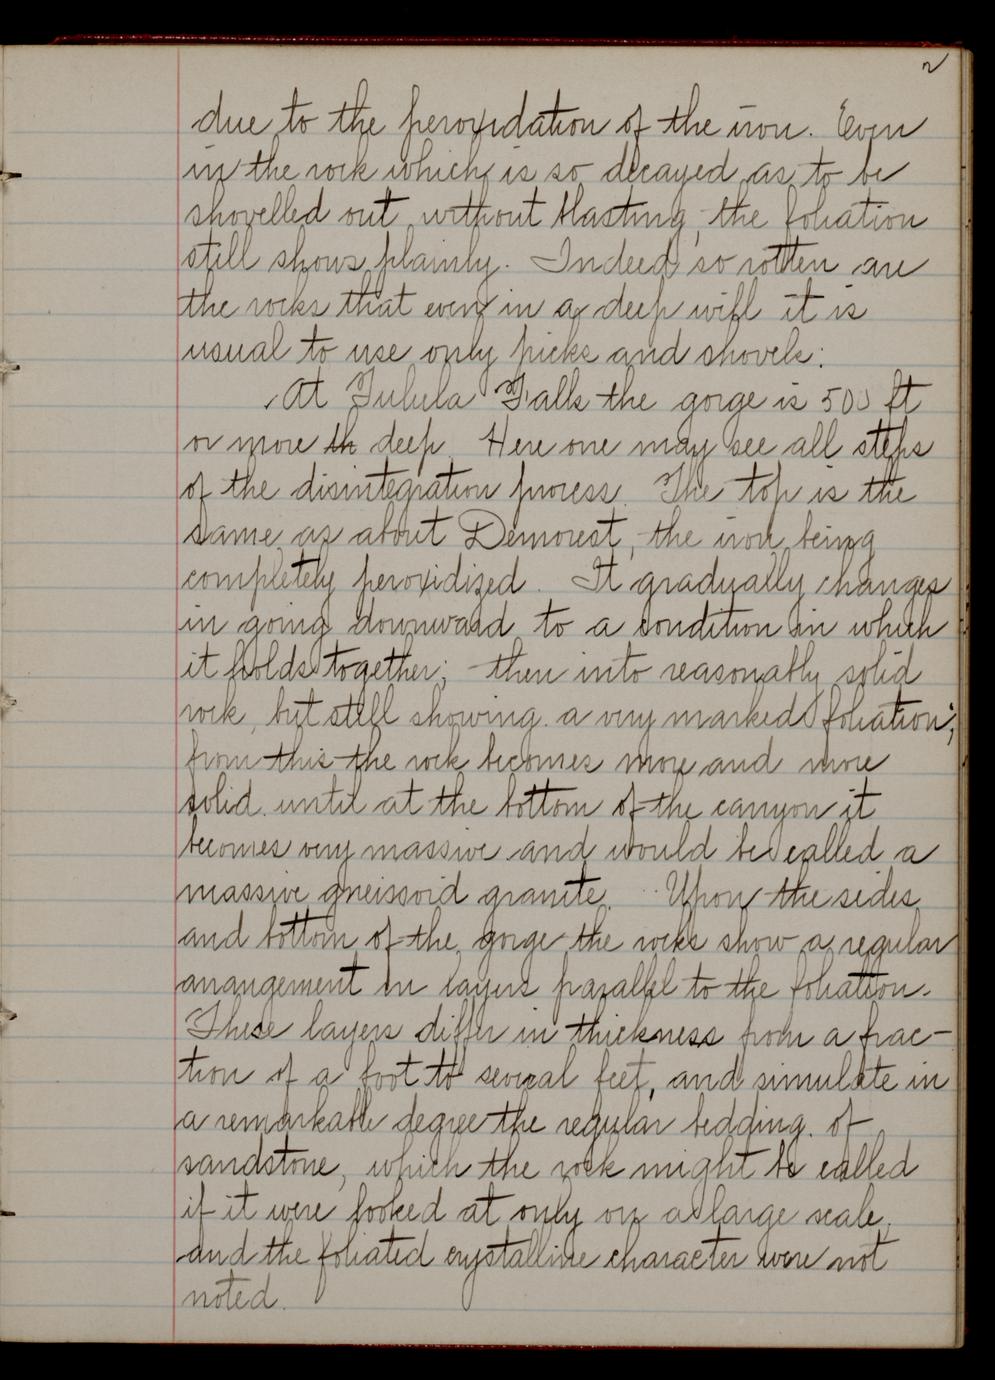 2
due to the peroxidation of the iron. Even
in the rock which is so decayed as to be
shovelled out without blasting, the foliation
still shows plainly. Indeed so rotten are
the rocks that even in a deep well it is
usual to use only picks and shovels.
At Tulula Falls the gorge is 500 ft
or more deep. Here one may see all steps
of the disintegration process. The top is the
same as about Demorest, the iron being
completely peroxidized. It gradually changes
in going downward to a condition in which
it holds together; then into reasonably solid
rock, but still showing a very marked foliation;
from this the rock becomes more and more
solid until at the bottom of the canyon it
becomes very massive and would be called a
massive gneissoid granite. Upon the sides
and bottom of the gorge the rocks show a regular
arrangement in layers parallel to the foliation.
These layers differ in thickness from a frac-
tion of a foot to several feet, and simulate in
a remarkable degree the regular bedding of
sandstone, which the rock might be called
if it were looked at only on a large scale
and the foliated crystalline character were not
noted.